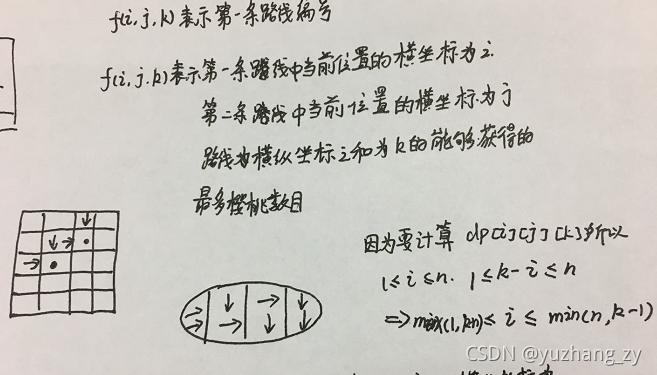 f(i,j,k)表示第一条路线编号
f(i,j.k)表示第一条路线中当前位置的横坐标为i.
第二条路线中当前位置的横坐标为j
路线为横纵坐标之和为k的能够获得的
最多樱桃数目
因为要计算 dp[i][j][k]所以
1≤i≤n. 1≤k-i≤n
⇒max(1,kn)≤i≤min(n,k-1)
CSDN @yuzhang_zy